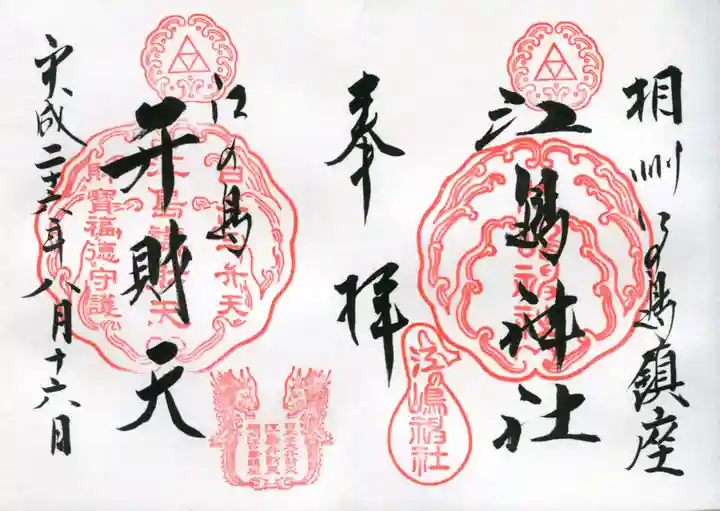 相州江の島鎮座
江島神社
江嶋神社
奉拝
江の島
弁財天
財寶福徳守護
平成二十六年八月十六日